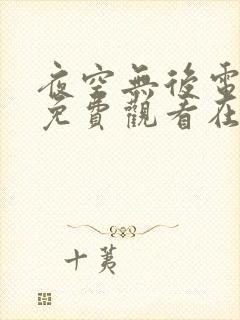 夜空無後電
免費觀看在
十荑